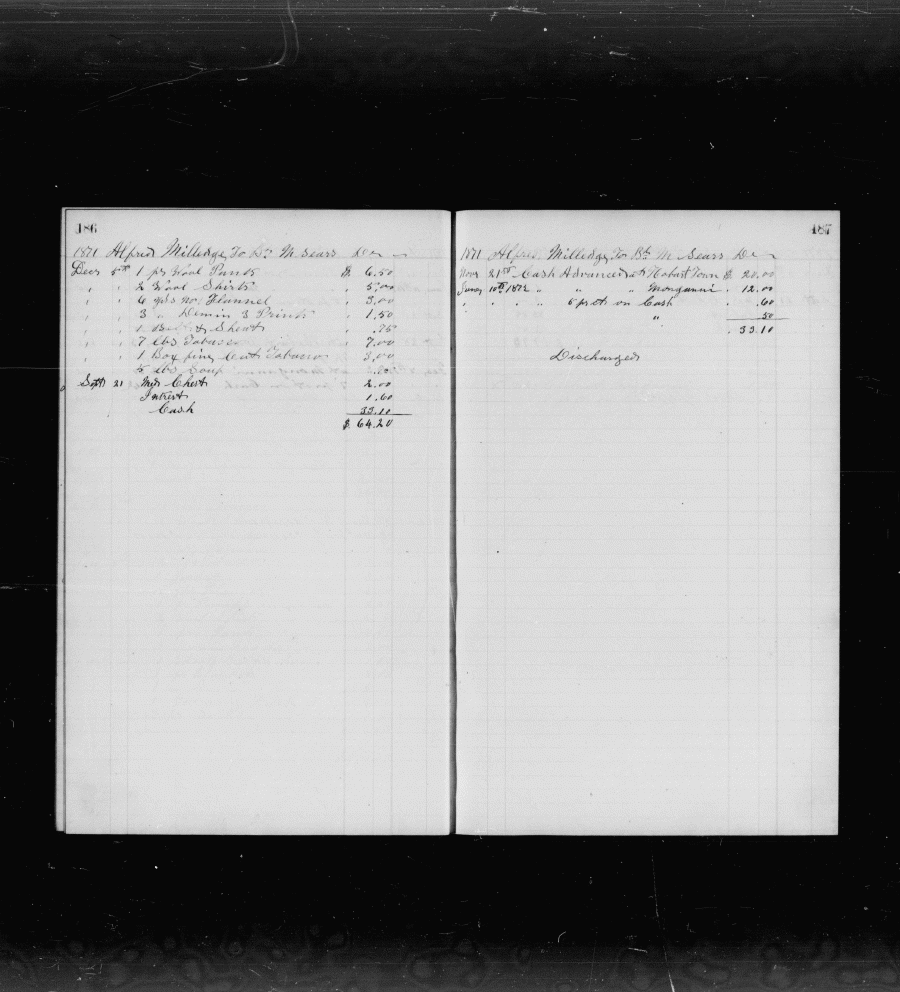 186
1871 Alfred Milledge To Bk M Sears Dr
Decr 5th 1 pr Wool Pants $ 6.50
" " 2 Wool Shirts " 5.00
" " 6 yds no Flannel " 3.00
" " 3 " Demin 3 Prints " 1.50
" " 1 Belt & Sheath " .75
" " 7 lbs Tobacco " 7.00
" " 1 Box fine Cut Tobacco " 3.00
5 lbs Soap
Sept 21 Med Chest 2.00
Intrest 1.60
Cash 33.10
$ 64.20
187
1871 Alfred Milledge To Bk M Sears Dr
Novr 21st Cash Advanced at Hobart Town $ 20.00
10th 1872 " " " Monganui " 12.00
" " " 5 pr ct on Cash .60
" .50
" 33.10
Discharged